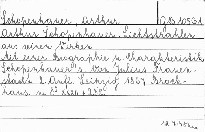 Schopenhauer, Arthur.
Arthur Schopenhauer. Lichtstrahlen
aus seinen Werken.
Mit einer Biographie u. Charakteristik
Schopenhauer's. Von Julius Frauen-
städt. 2. Aufl. Leipzig, 1867. Brock-
haus.